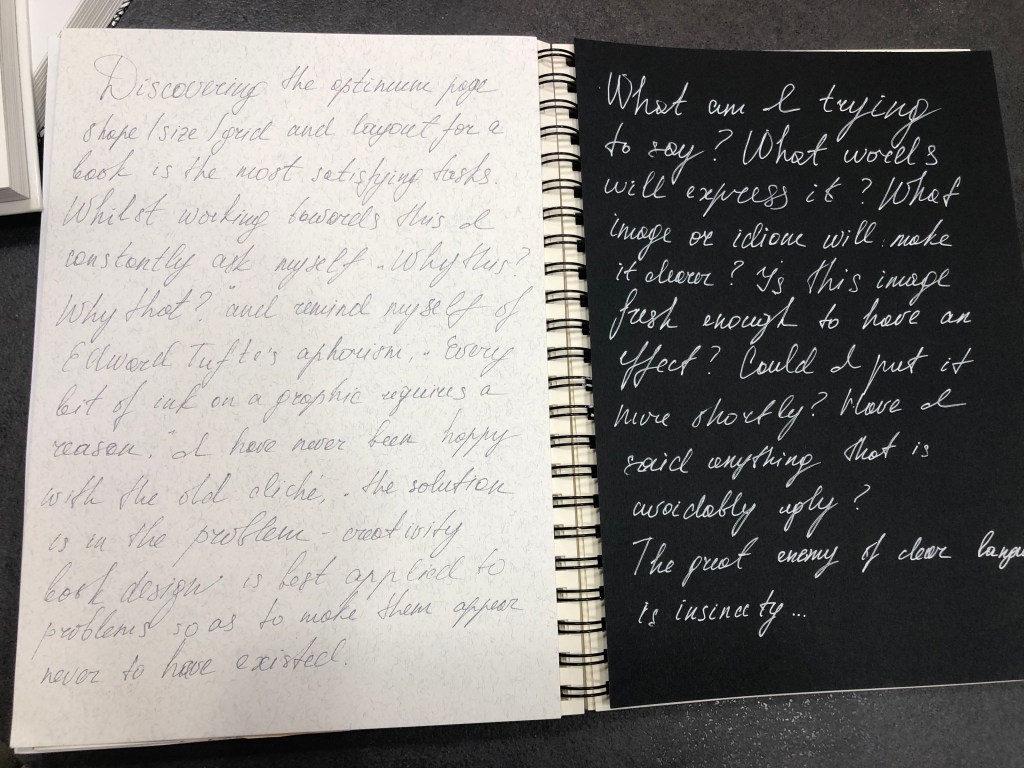 Discovering the optimum page
shape/size/grid and layout for a
book is the most satisfying tasks.
Whilst working towards this I
constantly ask myself „Why this?
Why that?" and remind myself of
Edward Tufte's aphorism, „Every
bit of ink on a graphic requires a
reason." I have never been happy
with the old cliché, „the solution
is in the problem – creativity
book design is best applied to
problems so as to make them appear
never to have existed.
What am I trying
to say? What words
will express it? What
image or idiom will make
it clearer? Is this image
fresh enough to have an
effect? Could I put it
more shortly? Have I
said anything that is
avoidably ugly?
The great enemy of clear langu
is insincety...